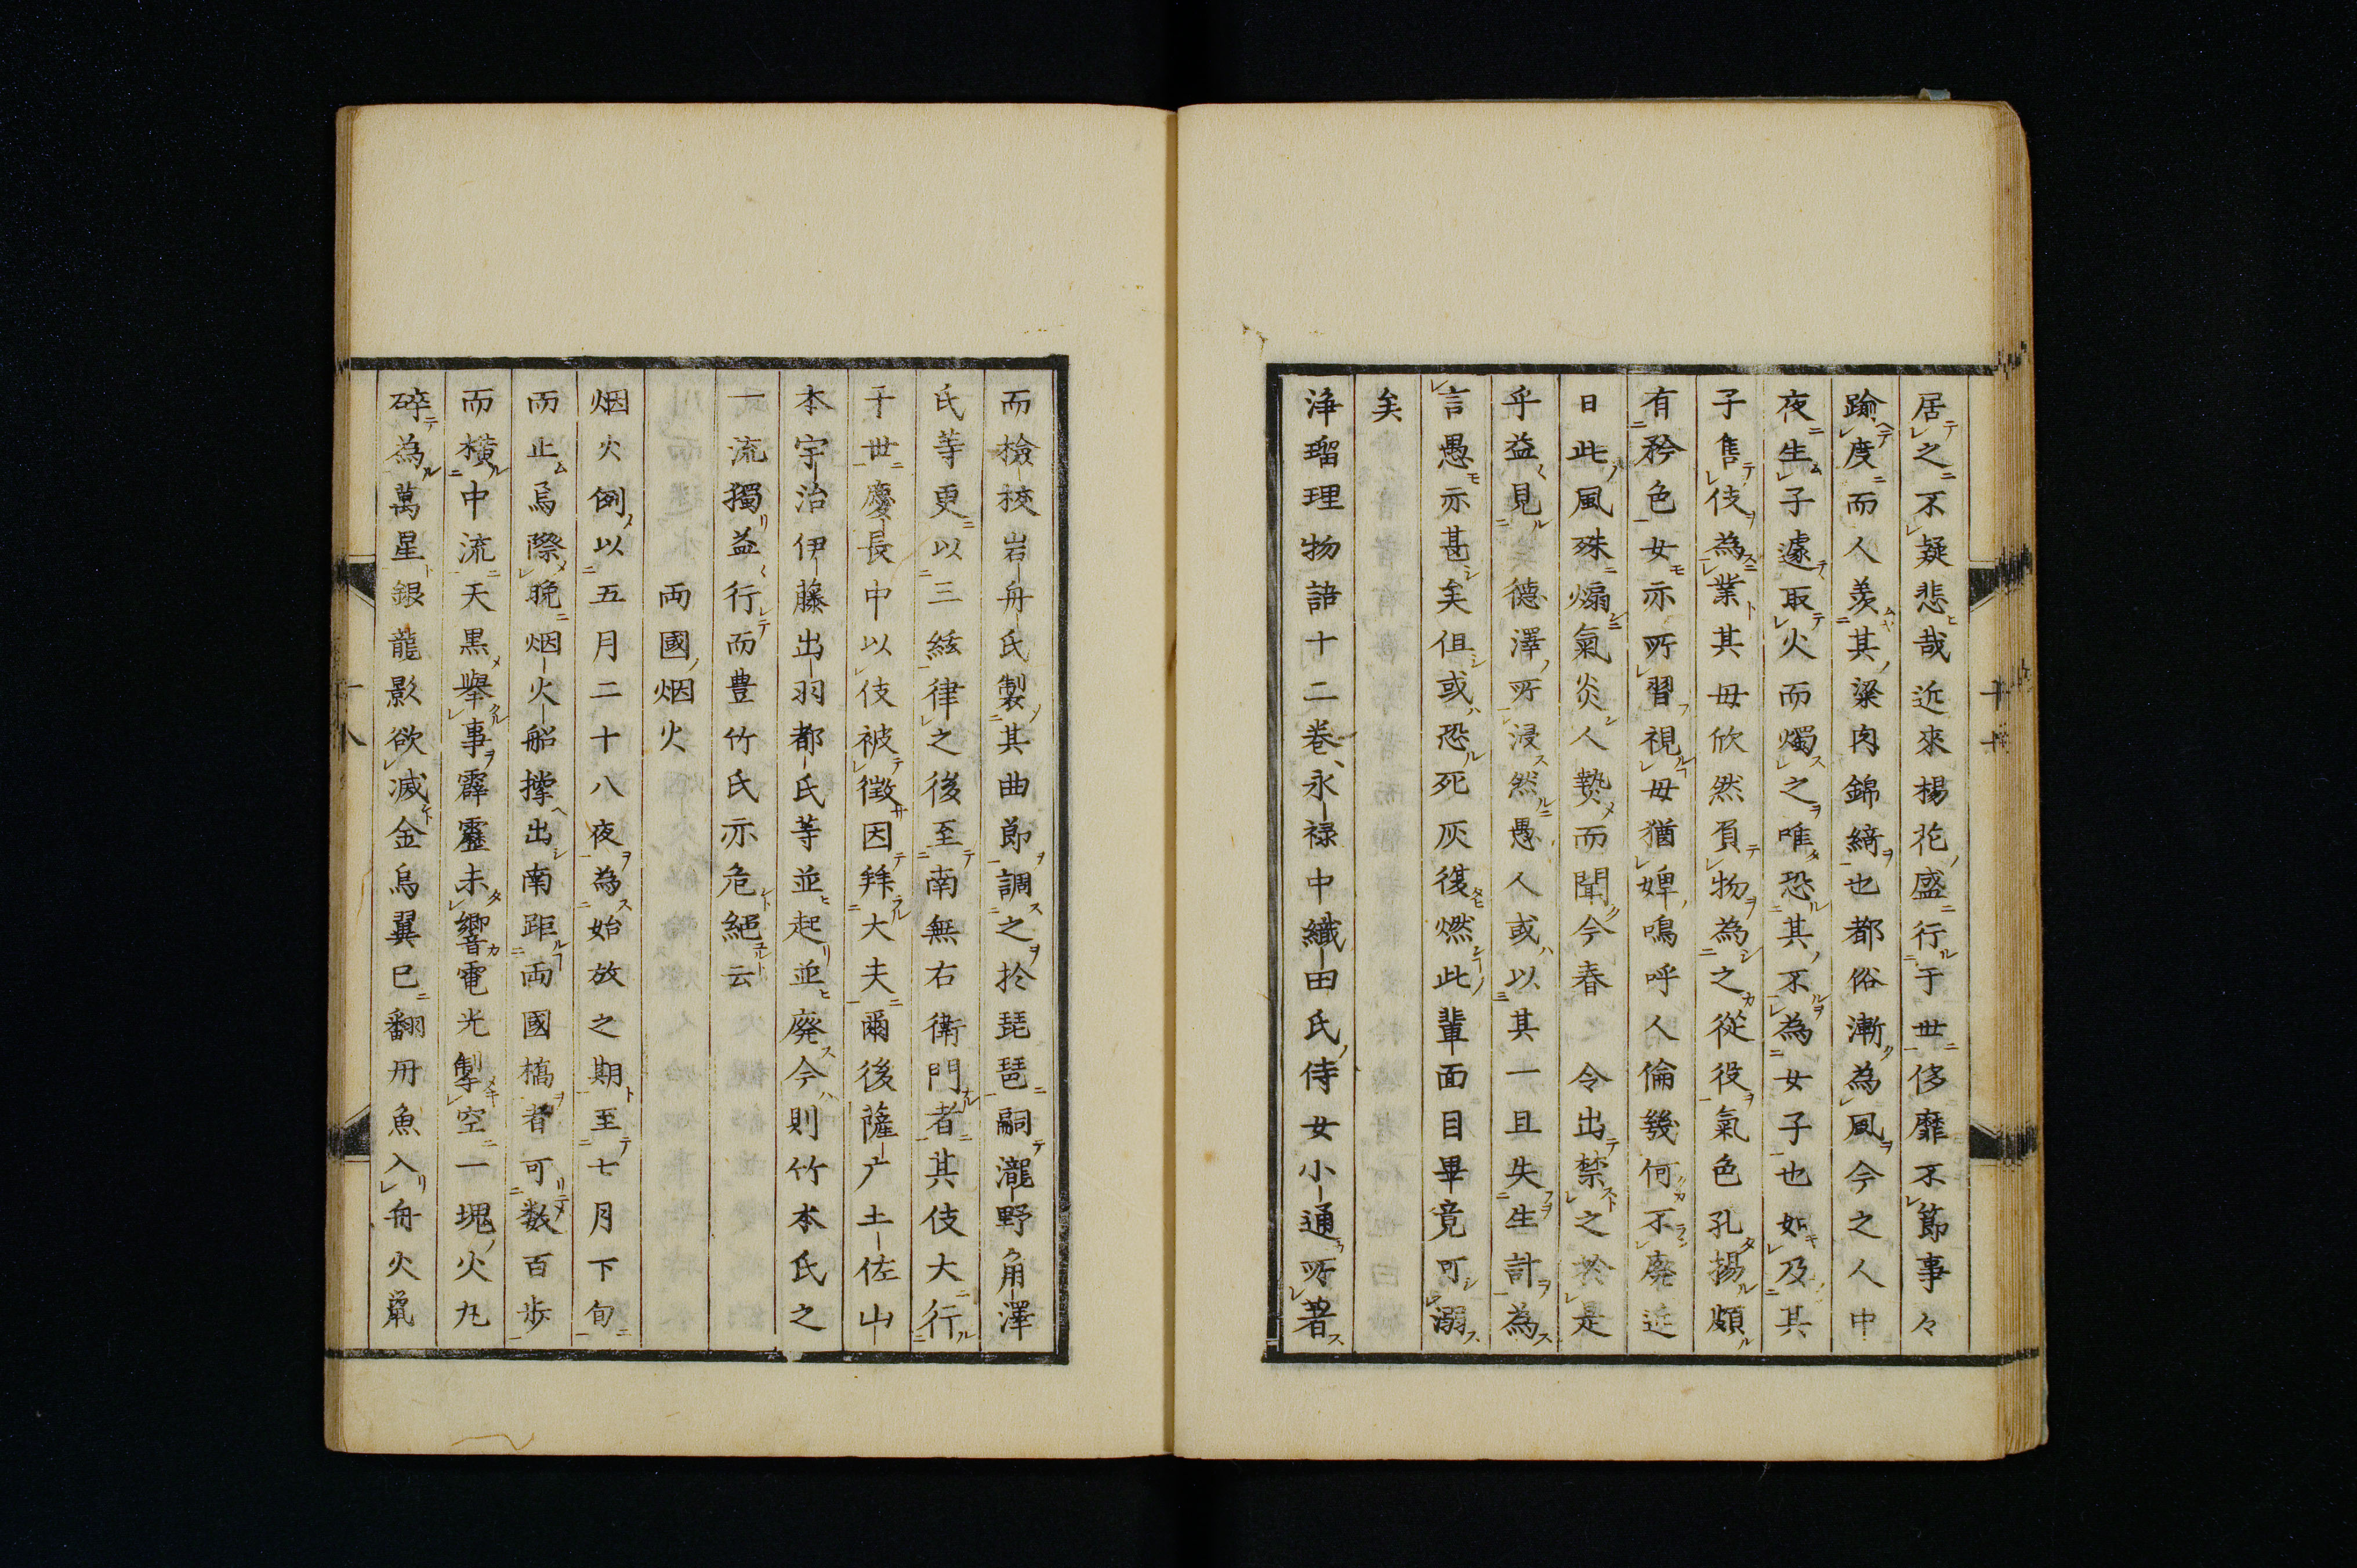 居之不疑悲哉近來楊花盛行于世侈靡不節事々
踰度而人羨其粱肉錦綺也都俗漸為風今之人中
夜生子遽取火而燭之唯恐其不為女子也如及其
子售伎為業其母欣然負物為之從役氣色孔揚頗
有矜色女亦所習視母猶婢嗚呼人倫幾何不廢近
日此風殊煽氣炎人贄而聞今春之令出禁之於是
乎益見德澤所浸然愚人或以其一旦失生計為
言愚亦甚矣但或恐死灰復燃此輩面目畢竟可溺
矣
浄瑠理物語十二卷永禄中織田氏侍女小通所著
而檢校岩舟氏製其曲節調之於琵琶嗣瀧野角澤
氏等更以三絃律之後至南無右衛門者其伎大行
于世慶長中以伎被徴因拜大夫爾後薩广土佐山
本宇治伊藤出羽都氏等並起並廃今則竹本氏之
一流獨益行而豊竹氏亦危絕云
両國烟火
烟火例以五月二十八夜為始放之期至七月下旬
而止烏際晚烟火船撑出南距両國橋者可数百步
而橫中流天黒舉事霹靂未響電光掣空一塊火丸
碎為萬星銀龍影欲滅金烏翼已翻丹魚入舟火鼠